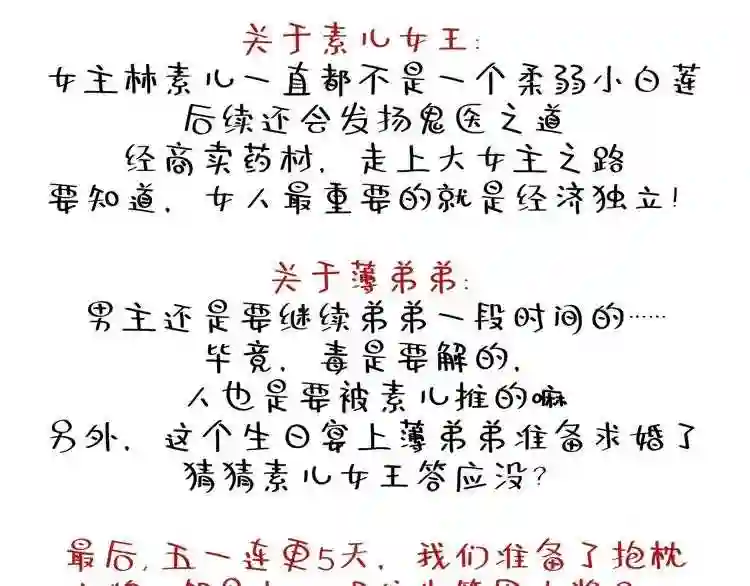 关于素儿女王:
女主林素儿一直都不是一个柔弱小白莲
后续还会发扬鬼医之道
经商卖药材，走上大女主之路
要知道，女人最重要的就是经济独立!
关于薄弟弟:
男主还是要继续弟弟一段时间的……
毕竟，毒是要解的，
人也是要被素儿推的嘛
另外，这个生日宴上薄弟弟准备求婚了
猜猜素儿女王答应没?
最后，五一连更5天，我们准备了抱枕